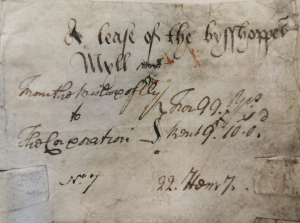 A lease of the bysshoppes
Myll
From the Bishop of Ely } For 99. Yrs
to
The Corporation } Rent 9£. 10s. 0d.
No. 7 22. Hen. 7.